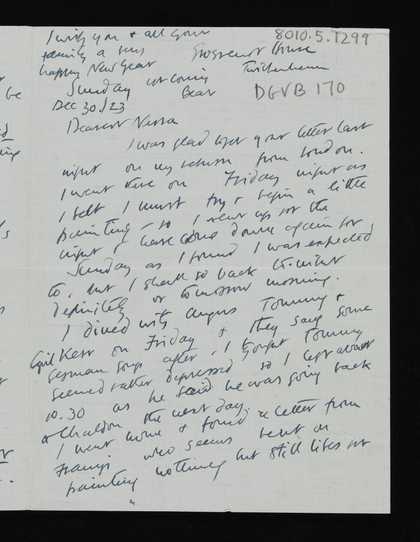 I wish you & all your
family a very
happy New Year
8010.5.1299
Grosvenor House
Twickenham
DGVB 170
Sunday
Dec 30/23
Dearest Nessa
I was glad to get your letter last
night on my return from London.
I went there on Friday night as
I felt I must try & begin a little
painting - so I went up for the
night & have come down again for
Sunday as I found I was expected
to, but I shall go back to-night
definitely or tomorrow morning.
I dined with Angus Tommy &
Cyril Kerr on Friday & they sang some
German songs after. I thought Tommy
seemed rather depressed so I left about
10.30 as he said he was going back
to Chaldon the next day.
I went home & found a letter from
Franji who seems bent on
painting nothing but still lifes at
be